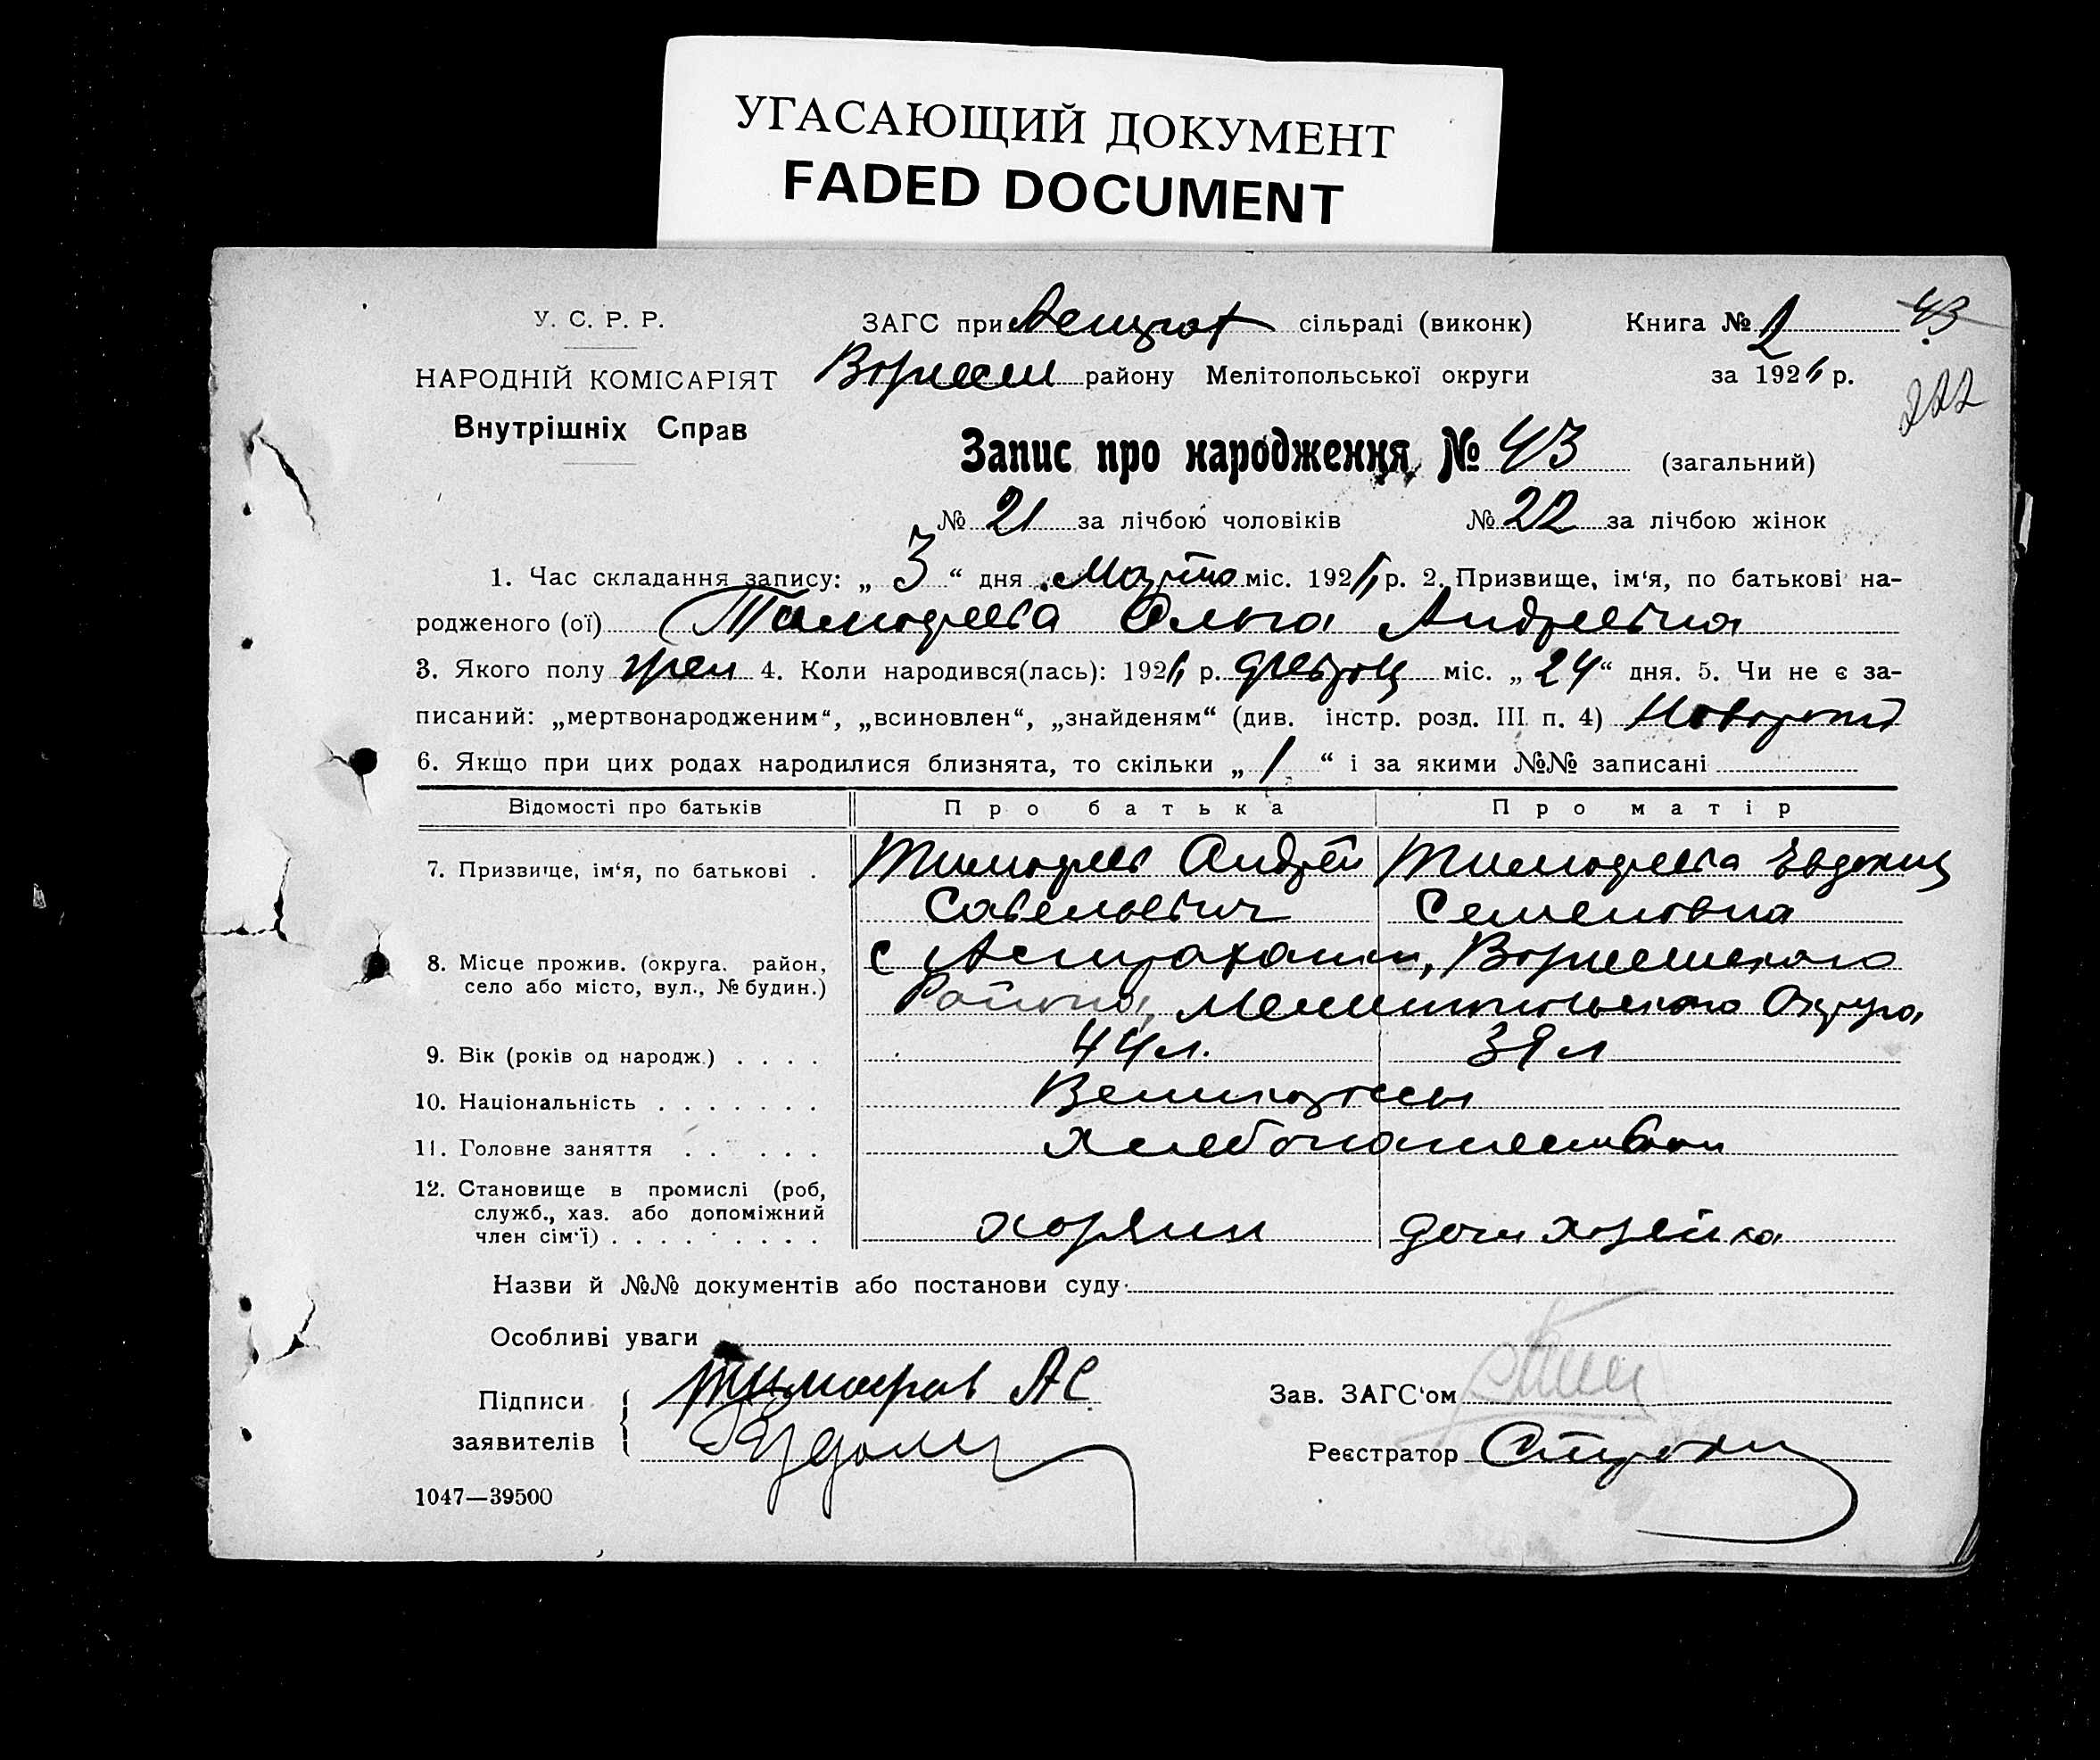 УГАСАЮЩИЙ ДОКУМЕНТ
FADED DOCUMENT
У. С. Р. Р.
ЗАГС при Астрах сільраді (виконк)
Книга № 2
43
НАРОДНІЙ КОМІСАРІЯТ
району Мелітопольської округи
за 192 р.
222
Внутрішніх Справ
Запис про народження № 43 (загальний)
№ 21 за лічбою чоловіків № 22 за лічбою жінок
1. Час складання запису: „ 3 “ дня Марта міс. 192 р. 2. Призвище, ім‘я, по батькові на-
родженого (ої) Тимофеева Ольга Андреевна
3. Якого полу жен 4. Коли народився(лась): 192 р. февраля міс. „ 24 “ дня. 5. Чи не є за-
писаний: „мертвонародженим“, „всиновлен“, „знайденям“ (див. інстр. розд. III п. 4)
6. Якщо при цих родах народилися близнята, то скільки „ 1 “ і за якими №№ записані
Відомості про батьків
Про батька
Про матір
7. Призвище, ім‘я, по батькові .
Тимофеев Андрей
Савельевич
Тимофеева Евдокия
Семеновна
8. Місце прожив. (округа. район,
село або місто, вул., № будин.)
с Астраханки,
Района, Мелитопольского Округа
9. Вік (років од народж.) . . . .
44 л.
39 л
10. Національність . . . . . . .
Великороссы
11. Головне заняття . . . . .
хлебопашеством
12. Становище в промислі (роб,
служб., хаз. або допоміжний
член сім‘ї) . . . . . . . . .
хозяин
дом хозяйка
Назви й №№ документів або постанови суду
Особливі уваги
Підписи
заявителів
Тимофеев АС
Зав. ЗАГС‘ом
Реєстратор
1047—39500